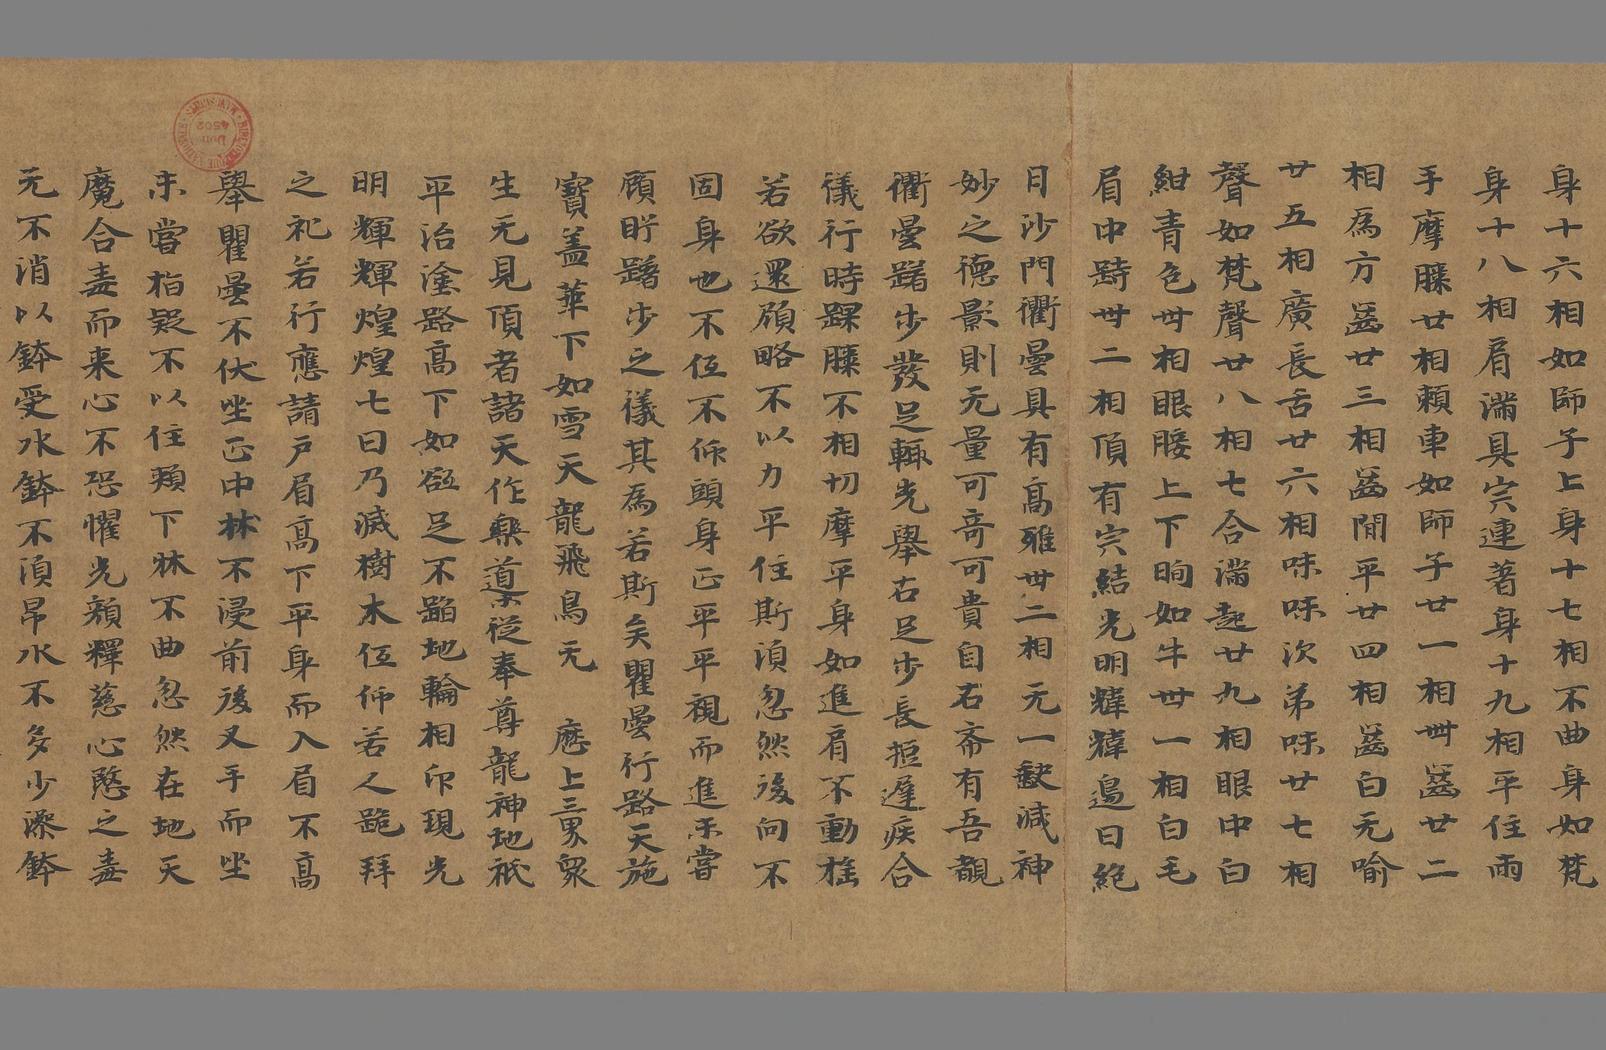 身十六相如師子上身十七相不曲身如梵
身十八相肩滿具宍連著身十九相平住兩
手摩膝廿相頰車如師子廿一相卌齒廿二
相為方齒廿三相齒間平廿四相齒白无喻
廿五相廣長舌廿六相味味次弟味廿七相
聲如梵聲廿八相七合滿起廿九相眼中白
紺青色卅相眼𥇒上下眴如牛卅一相白毛
眉中跱卅二相頂有宍結光明輝輝過日絕
日沙門衢曇具有高雅卅二相无一缺減神
妙之德影則无量可奇可貴自右斋有吾覩
衢曇躇步發足輙先舉右足步長𢮿遲疾合
儀行時踝膝不相切摩平身如進肩不動搖
若欲還頋略不以力平住斯湏忽然後向不
固身也不低不仰頭身正平平視而進未嘗
頋盱躇步之儀其為若斯矣瞿曇行路天施
寶盖華下如雪天龍飛鳥无 應上三界衆
生无見頂者諸天作樂導從奉尊龍神地祇
平治塗路高下如砥足不蹈地輪相印現光
明輝輝煌煌七日乃滅樹木低仰若人跪拜
之礼若行應請户眉高下平身而入眉不高
舉瞿曇不伏坐正中牀不浸前後叉手而坐
未嘗指疑不以住頬下牀不曲忽然在地天
魔合毒而来心不恐懼光顏釋慈心愍之毒
无不消以鉢受水鉢不湏昂水不多少澡鉢